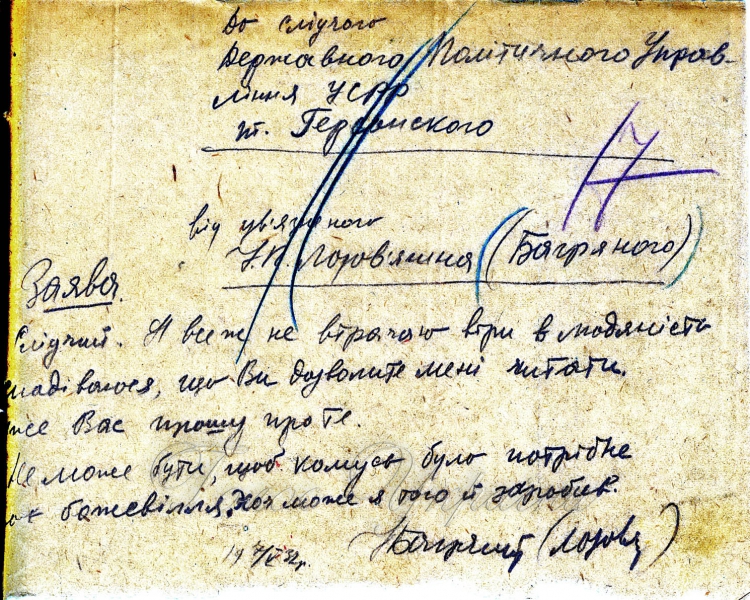 До слідчого
Державного Політичного Управ-
ління УСРР
т. Герсонского
7
від ув'язненого
І.П. Лозов'ягина (Багряного)
Заява.
Слідчий. Я все ж не втрачаю віри в людяність
надіваюся, що Ви дозволите мені читати.
же Вас прошу про те.
Не може бути, щоб комусь було потрібне
божевілля, хоч може я того й заробив.
ІБагряний (Лозовя)
19 7/V 32р.